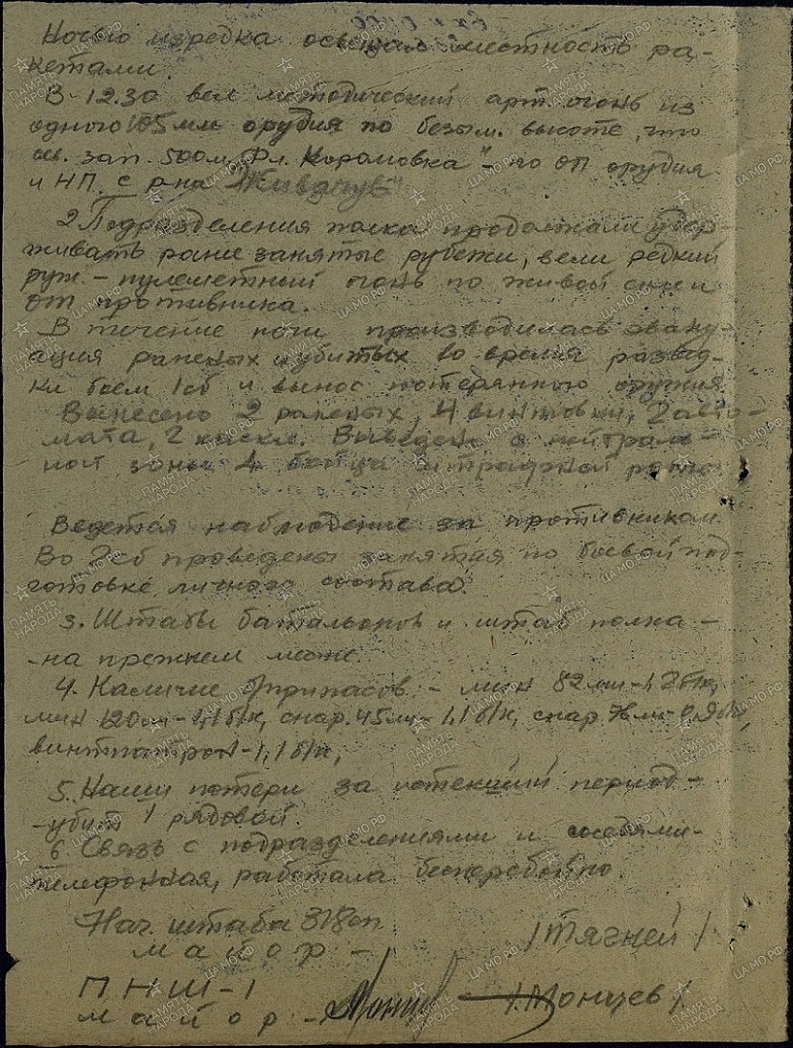 Ночью изредка освещал местность ра-
кетами.
В 12.30 вел методический арт. огонь из
одного 105 мм орудия по безым. высоте, что
сев. зап. 500 м, Фл. Карамовка" - по оп орудия
и НП. с р-на
2 Подразделения полка продолжали удер-
живать ранее занятые рубежи, вели редкий
руж. - пулеметный огонь по живой силе и
от противника.
В течение ночи производилась эваку-
ация раненых и убитых во время развед-
ки боем 1сб и вынос потерянного оружия
Вынесено 2 раненых, 4 винтовки, 2 авто-
мата, 2 каски. Выведен с нейтраль-
ной зоны 4 бойца штрафной роты
Ведется наблюдение за противником.
Во 2сб проведены занятия по боевой под-
готовке личного состава.
3. Штабы батальонов и штаб полка -
- на прежнем месте.
4. Наличие припасов - мин 82 мм - 1,2 б/к,
мин 120 мм - 1,1 б/к, снар. 45 м - 1,1 б/к, снар 76 м - 0,9 б/к,
винтпатрон - 1,1 б/к,
5. Наши потери за истекший период -
- убит 1 рядовой.
6 Связь с подразделениями и соседями -
телефонная, работала бесперебойно.
Нач. штаба 318 сп
майор - /Тягней/
ПНШ-1
майор - /Монцев/
ПАМЯТЬ НАРОДА
ЦАМО.РФ